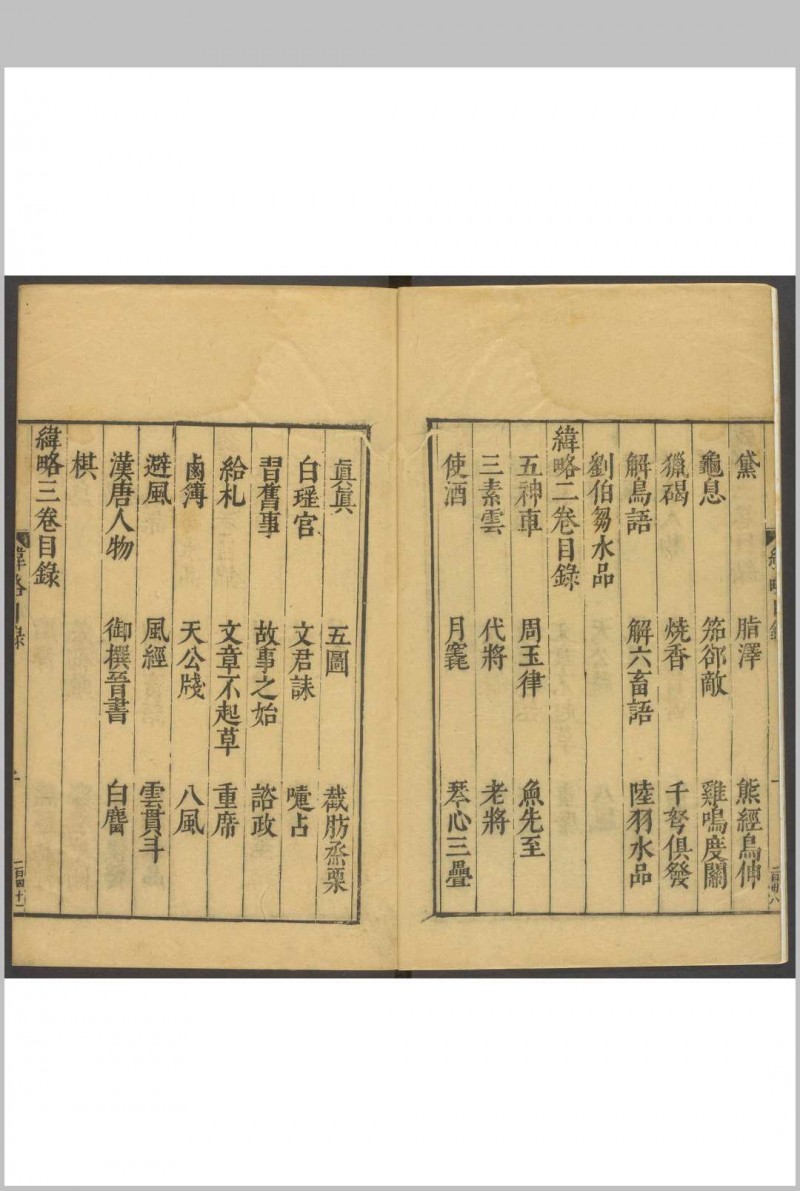 黛　脂澤　熊經鳥伸
龜息　笳郤敵　雞鳴度關
獵碣　燒香　千弩俱發
解鳥語　解六畜語　陸羽水品
劉伯芻水品
緯略二卷目錄
五神車　周玉律　魚先至
三素雲　代將　老將
使酒　月䨮　琴心三疊
眞眞　五圖　截肪烝栗
白瑤宮　文君誄　嚏占
㫺舊事　故事之始　諮政
給札　文章不起草　重席
鹵簿　天公牋　八風
避風　風經　雲貫斗
漢唐人物　御撰晉書　白麿
棋
緯略三卷目錄